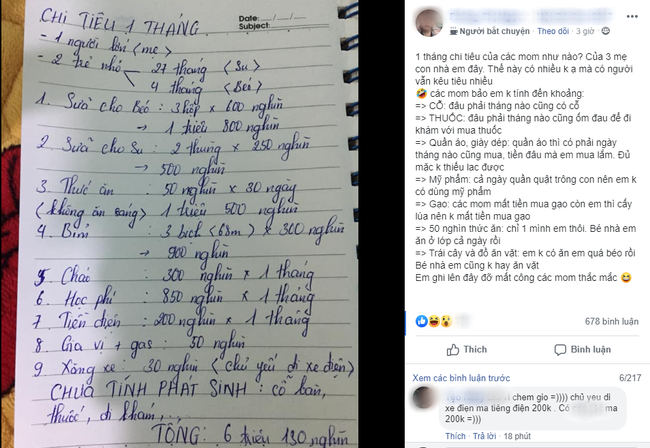 CHI TIÊU 1 THÁNG.
Date: ..../..../....
Subject:
- 1 người lớn (mẹ)
- 2 trẻ nhỏ 27 tháng (Su)
4 tháng (Béo)
1. Sữa cho Béo : 3 hộp × 600 nghìn
→ 1 triệu 800 nghìn
2. Sữa cho Su : 2 thùng × 250 nghìn
→ 500 nghìn
3. Thức ăn : 50 nghìn × 30 ngày
(không ăn sáng) 1 triệu 500 nghìn
4. Bỉm : 3 bịch (68m) × 300 nghìn
→ 900 nghìn
5. Cháo : 300 nghìn × 1 tháng
6. Học phí : 850 nghìn × 1 tháng
7 Tiền điện : 200 nghìn × 1 tháng
8 Gia vị + gas : 50 nghìn
9 Xăng xe : 30 nghìn (chủ yếu đi xe điện)
CHƯA TÍNH PHÁT SINH : cỗ bàn,
thuốc, đi khám, ...
TỔNG: 6 triệu 130 nghìn
Người bắt chuyện · Theo dõi · 3 giờ ·
1 tháng chi tiêu của các mom như nào? Của 3 mẹ
con nhà em đây. Thế này có nhiều k ạ mà có người
vẫn kêu tiêu nhiều
🤣 các mom bảo em k tính đến khoảng:
=> CỖ: đâu phải tháng nào cũng có cỗ
=> THUỐC: đâu phải tháng nào cũng ốm đau để đi
khám với mua thuốc
=> Quần áo, giày dép: quần áo thì có phải ngày
tháng nào cũng mua, tiền đâu mà em mua lắm. Đủ
mặc k thiếu lạc được
=> Mỹ phẩm: cả ngày quần quật trông con nên em k
có dùng mỹ phẩm
=> Gạo: các mom mất tiền mua gạo còn em thì cấy
lúa nên k mất tiền mua gạo
=> 50 nghìn thức ăn: chỉ 1 mình em thôi. Bé nhà em
ăn ở lớp cả ngày rồi
=> Trái cây và đồ ăn vặt: em k có ăn em quá béo rồi
Bé nhà em cũng k hay ăn vặt
Em ghi lên đây đỡ mất công các mom thắc mắc 😅
678 bình luận
Thích
Bình luận
Xem các bình luận trước
6/217
chem gio =)))) chủ yeu di
xe điẹn ma tiêng điện 200k . Có ma
200k =)))
Thích · Trả lời · 18 phút